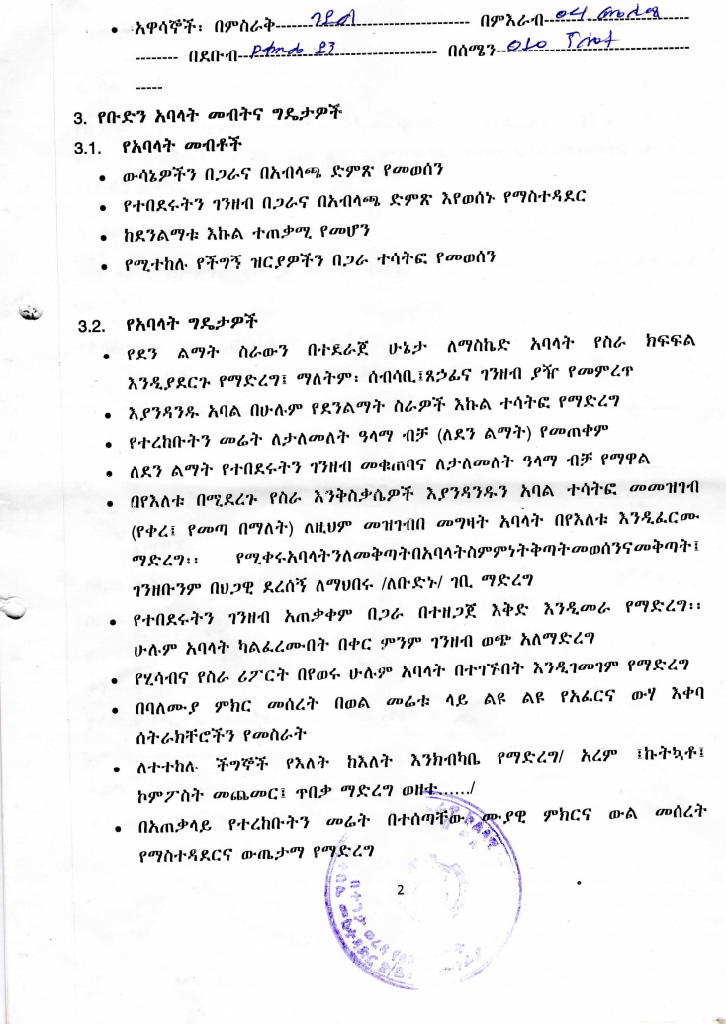 • አዋሳኞች፡ በምስራቅ------------------------------------ በምእራብ-04
--------- በደቡብ------------------------------------ በሰሜን
-----
3. የቡድን አባላት መብትና ግዴታዎች
3.1. የአባላት መብቶች
• ውሳኔዎችን በጋራና በአብላጫ ድምጽ የመወሰን
• የተበደሩትን ገንዘብ በጋራና በአብላጫ ድምጽ እየወሰኑ የማስተዳደር
• ከደንልማቱ እኩል ተጠቃሚ የመሆን
• የሚተከሉ የችግኝ ዝርያዎችን በጋራ ተሳትፎ የመወሰን
3.2. የአባላት ግዴታዎች
• የደን ልማት ስራውን በተደራጀ ሁኔታ ለማስኬድ አባላት የስራ ክፍፍል
እንዲያደርጉ የማድረግ፤ ማለትም፡ ሰብሳቢ፤ጸኃፊና ገንዘብ ያዥ የመምረጥ
• እያንዳንዱ አባል በሁሉም የደንልማት ስራዎች እኩል ተሳትፎ የማድረግ
• የተረከቡትን መሬት ለታለመለት ዓላማ ብቻ (ለደን ልማት) የመጠቀም
• ለደን ልማት የተበደሩትን ገንዘብ መቁጠባና ለታለመለት ዓላማ ብቻ የማዋል
• በየእለቱ በሚደረጉ የስራ እንቅስቃሴዎች እያንዳንዱን አባል ተሳትፎ መመዝገብ
(የቀረ፤ የመጣ በማለት) ለዚህም መዝገብበ መግዛት አባላት በየእለቱ እንዲፈርሙ
ማድረግ፡፡ የሚቀሩአባላትንለመቅጣትበአባላትስምምነትቅጣትመወሰንናመቅጣት፤
ገንዘቡንም በህጋዊ ደረሰኝ ለማህበሩ /ለቡድኑ/ ገቢ ማድረግ
• የተበደሩትን ገንዘብ አጠቃቀም በጋራ በተዘጋጀ እቅድ እንዲመራ የማድረግ፡፡
ሁሉም አባላት ካልፈረሙበት በቀር ምንም ገንዘብ ወጭ አለማድረግ
• የሂሳብና የስራ ሪፖርት በየወሩ ሁሉም አባላት በተገኙበት እንዲገመገም የማድረግ
• በባለሙያ ምክር መሰረት በወል መሬቱ ላይ ልዩ ልዩ የአፈርና ውሃ እቀባ
ሰትራክቸሮችን የመስራት
• ለተተከሉ ችግኞች የእለት ከእለት እንክብካቤ የማድረግ/ አረም ፤ኩትኳቶ፤
ኮምፖስት መጨመር፤ ጥበቃ ማድረግ ወዘተ....../
• በአጠቃላይ የተረከቡትን መሬት በተሰጣቸው ሙያዊ ምክርና ውል መሰረት
የማስተዳደርና ውጤታማ የማድረግ
2